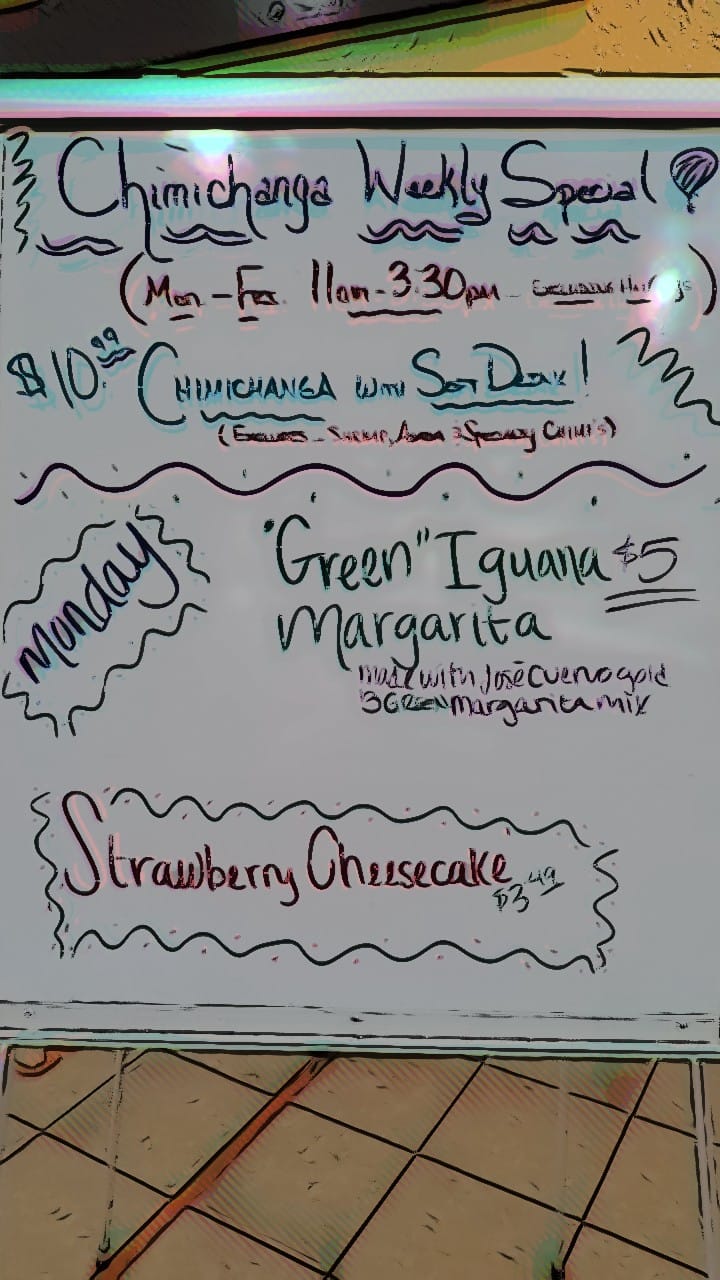 Chimichanga Weekly Special
(Mon - Fri 11am - 3:30pm - Excludes
$10.99 CHIMICHANGA WITH SOFT DRINK!
(Excludes - Shrimp, & Specialty CHIMI'S)
Monday
"Green" Iguana $5
Margarita
made with José Cuervo gold
& GREEN margarita mix
Strawberry Cheesecake
$3.49